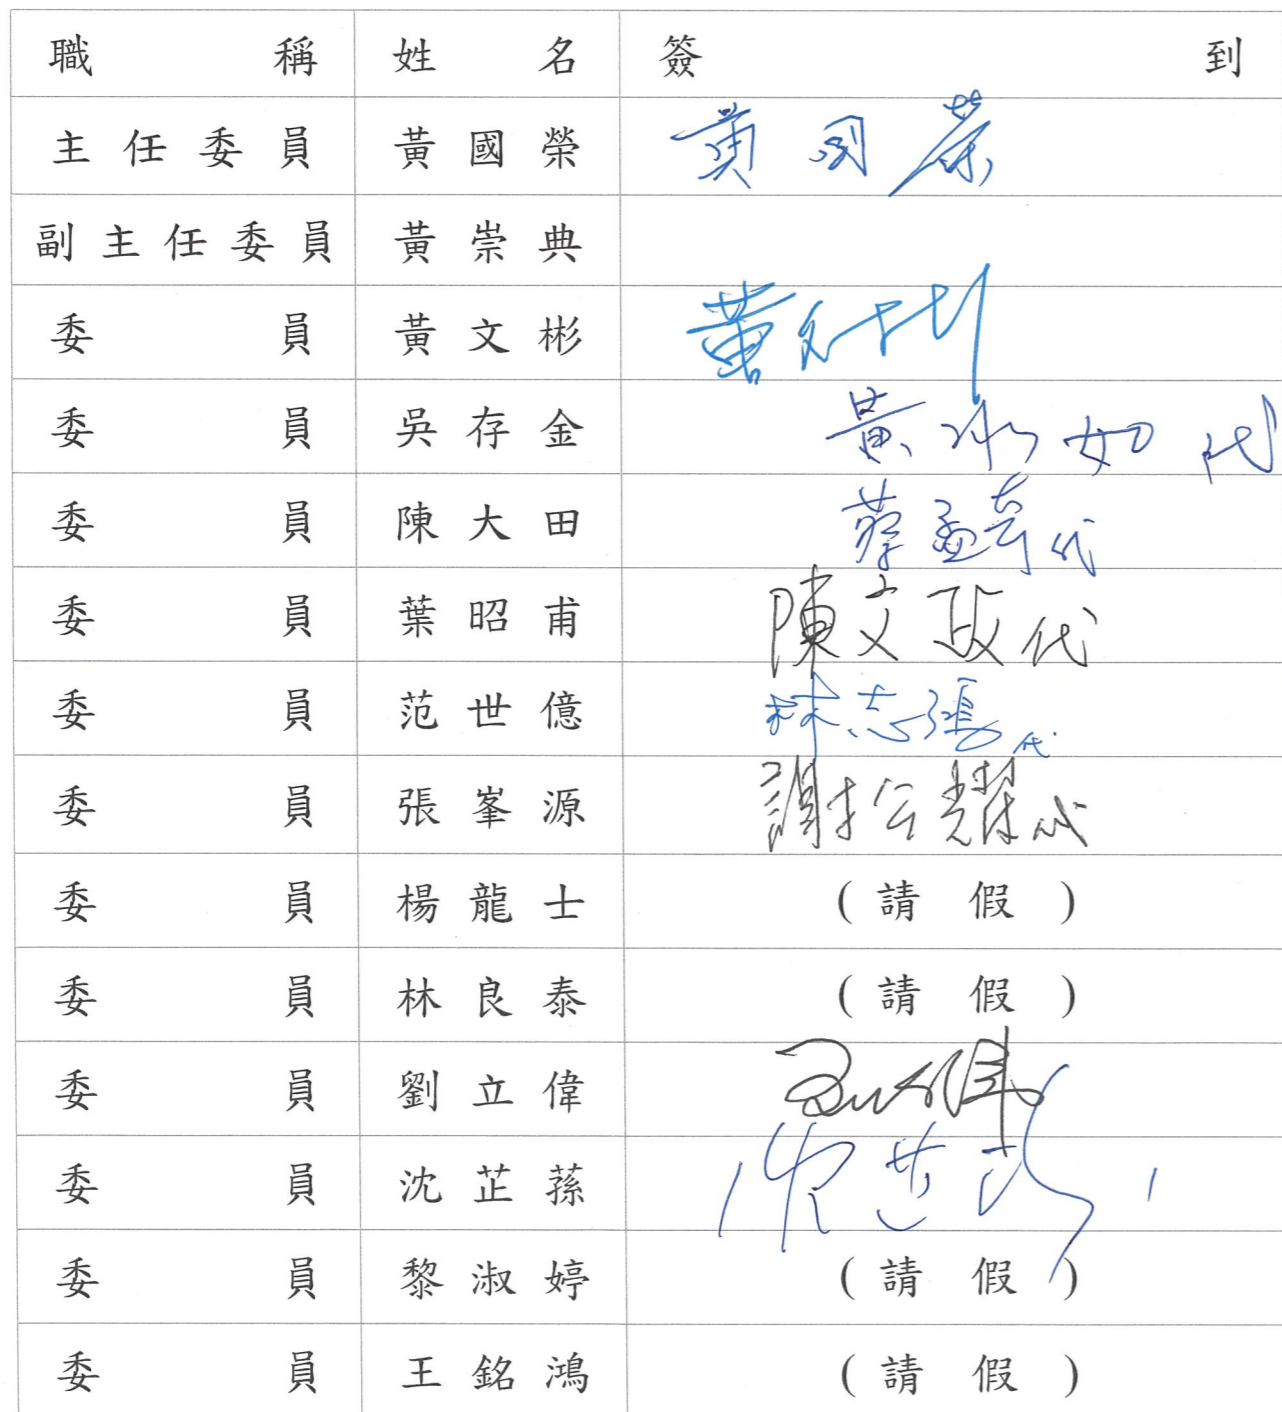 職稱 姓名 簽到
主任委員 黃國榮 黃国榮
副主任委員 黃崇典
委員 黃文彬 黃文彬
委員 吳存金 黃冰如代
委員 陳大田 蔡孟奇代
委員 葉昭甫 陳文政代
委員 范世億 林志鴻代
委員 張峯源 謝公耀代
委員 楊龍士 (請假)
委員 林良泰 (請假)
委員 劉立偉
委員 沈芷蓀 沈芷蓀
委員 黎淑婷 (請假)
委員 王銘鴻 (請假)